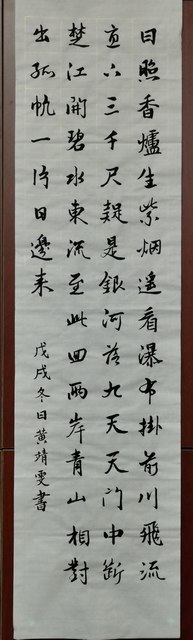 日照香爐生紫烟遥看瀑布掛前川飛流
直下三千尺疑是銀河落九天天门中断
楚江開碧水東流至此回兩岸青山相對
出孤帆一片日邊来
戊戌冬日黄靖雯書